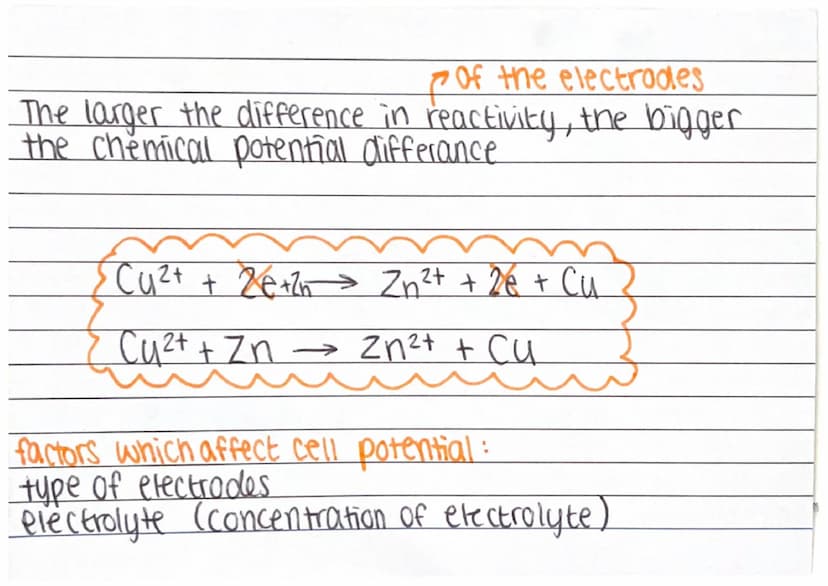 of the electrodes
The larger the difference in reactivity, the bigger
the chemical potential differance
Cu²⁺ + 2e + Zn → Zn²⁺ + 2e + Cu
Cu²⁺ + Zn → Zn²⁺ + Cu
factors which affect cell potential:
type of electrodes
electrolyte (concentration of electrolyte)